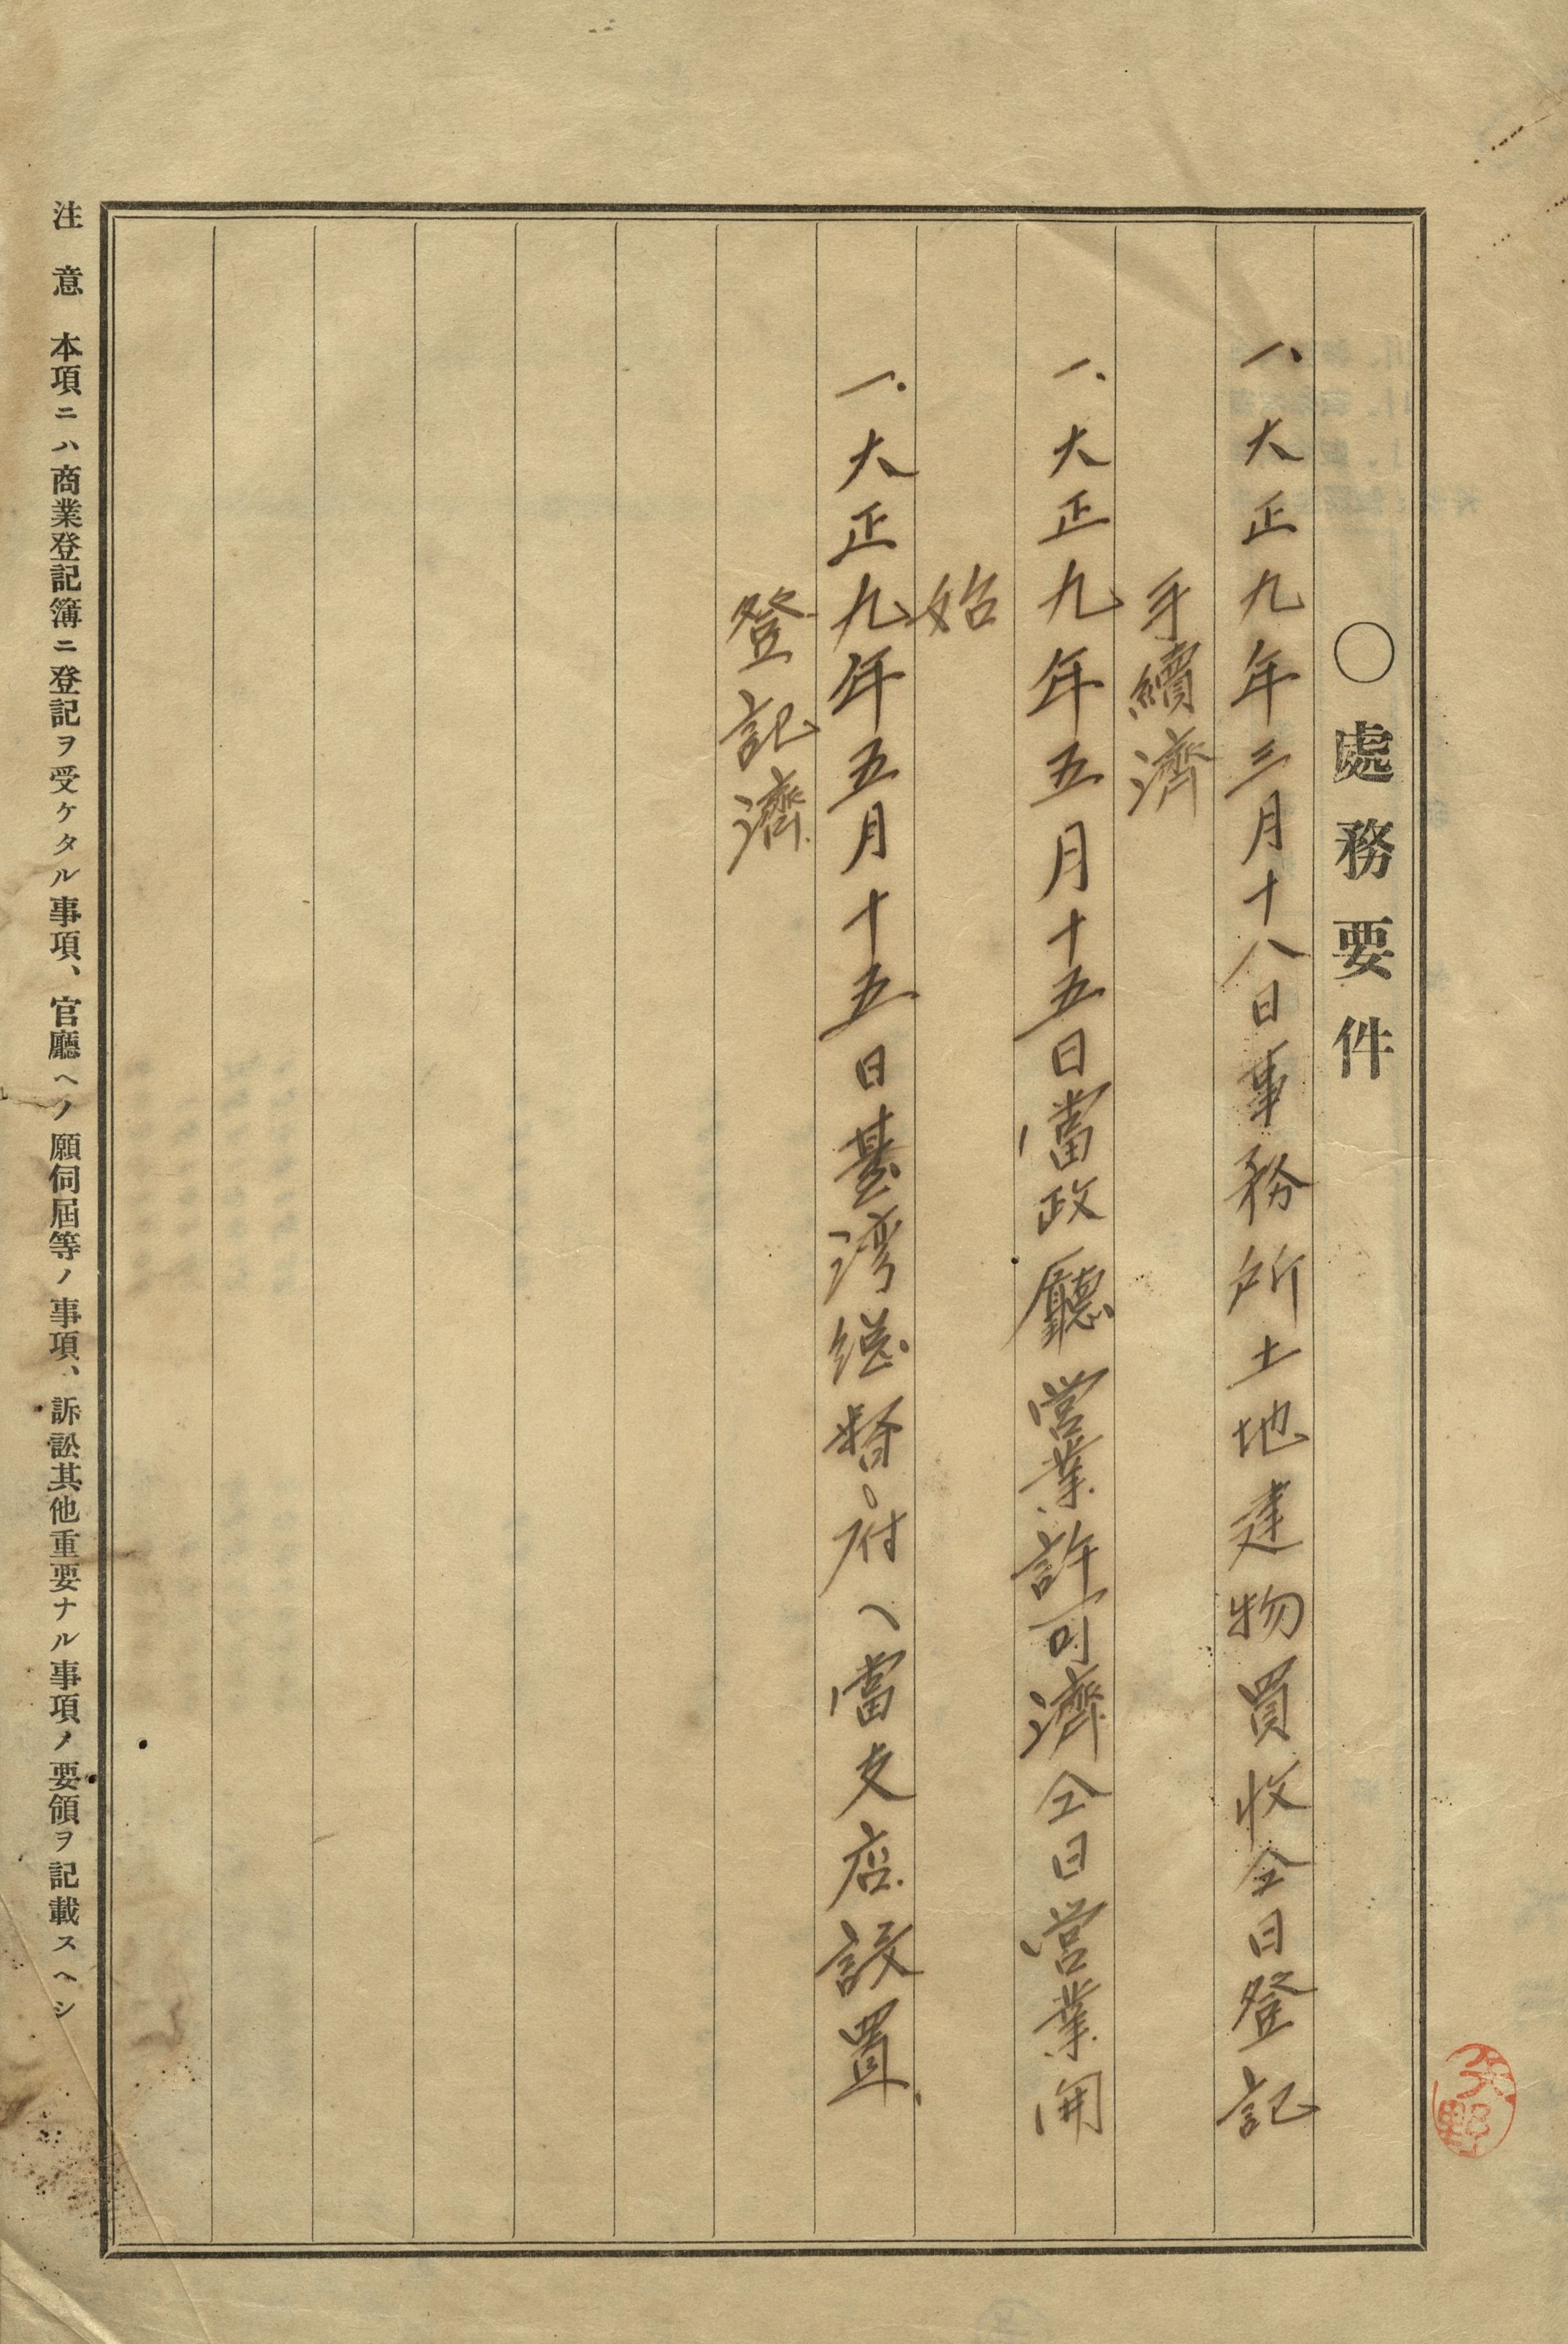 〇處務要件
一、大正九年三月十八日事務所土地建物買收仝日登記
手續濟
一、大正九年五月十五日當政廳営業許可濟仝日営業開
始
一、大正九年五月十五日臺湾総督府へ當支店設置
登記濟
注意 本項ニハ商業登記簿ニ登記ヲ受ケタル事項、官廳ヘノ願伺屆等ノ事項、訴訟其他重要ナル事項ノ要領ヲ記載スヘシ
矢野